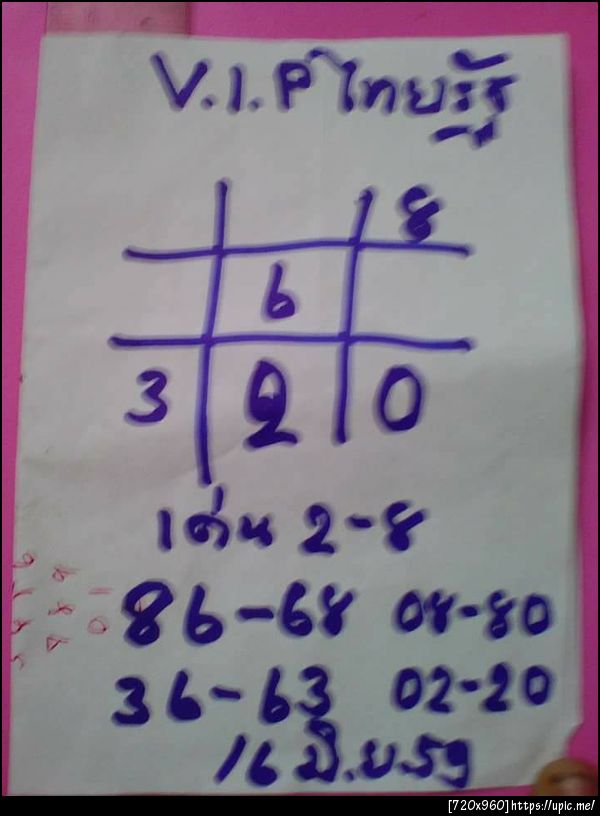 V.I.P ไทยรัฐ
8
6
3 2 0
เด่น 2-8
86-68 08-80
36-63 02-20
16 มิ.ย.59
[720x960]https://upic.me/